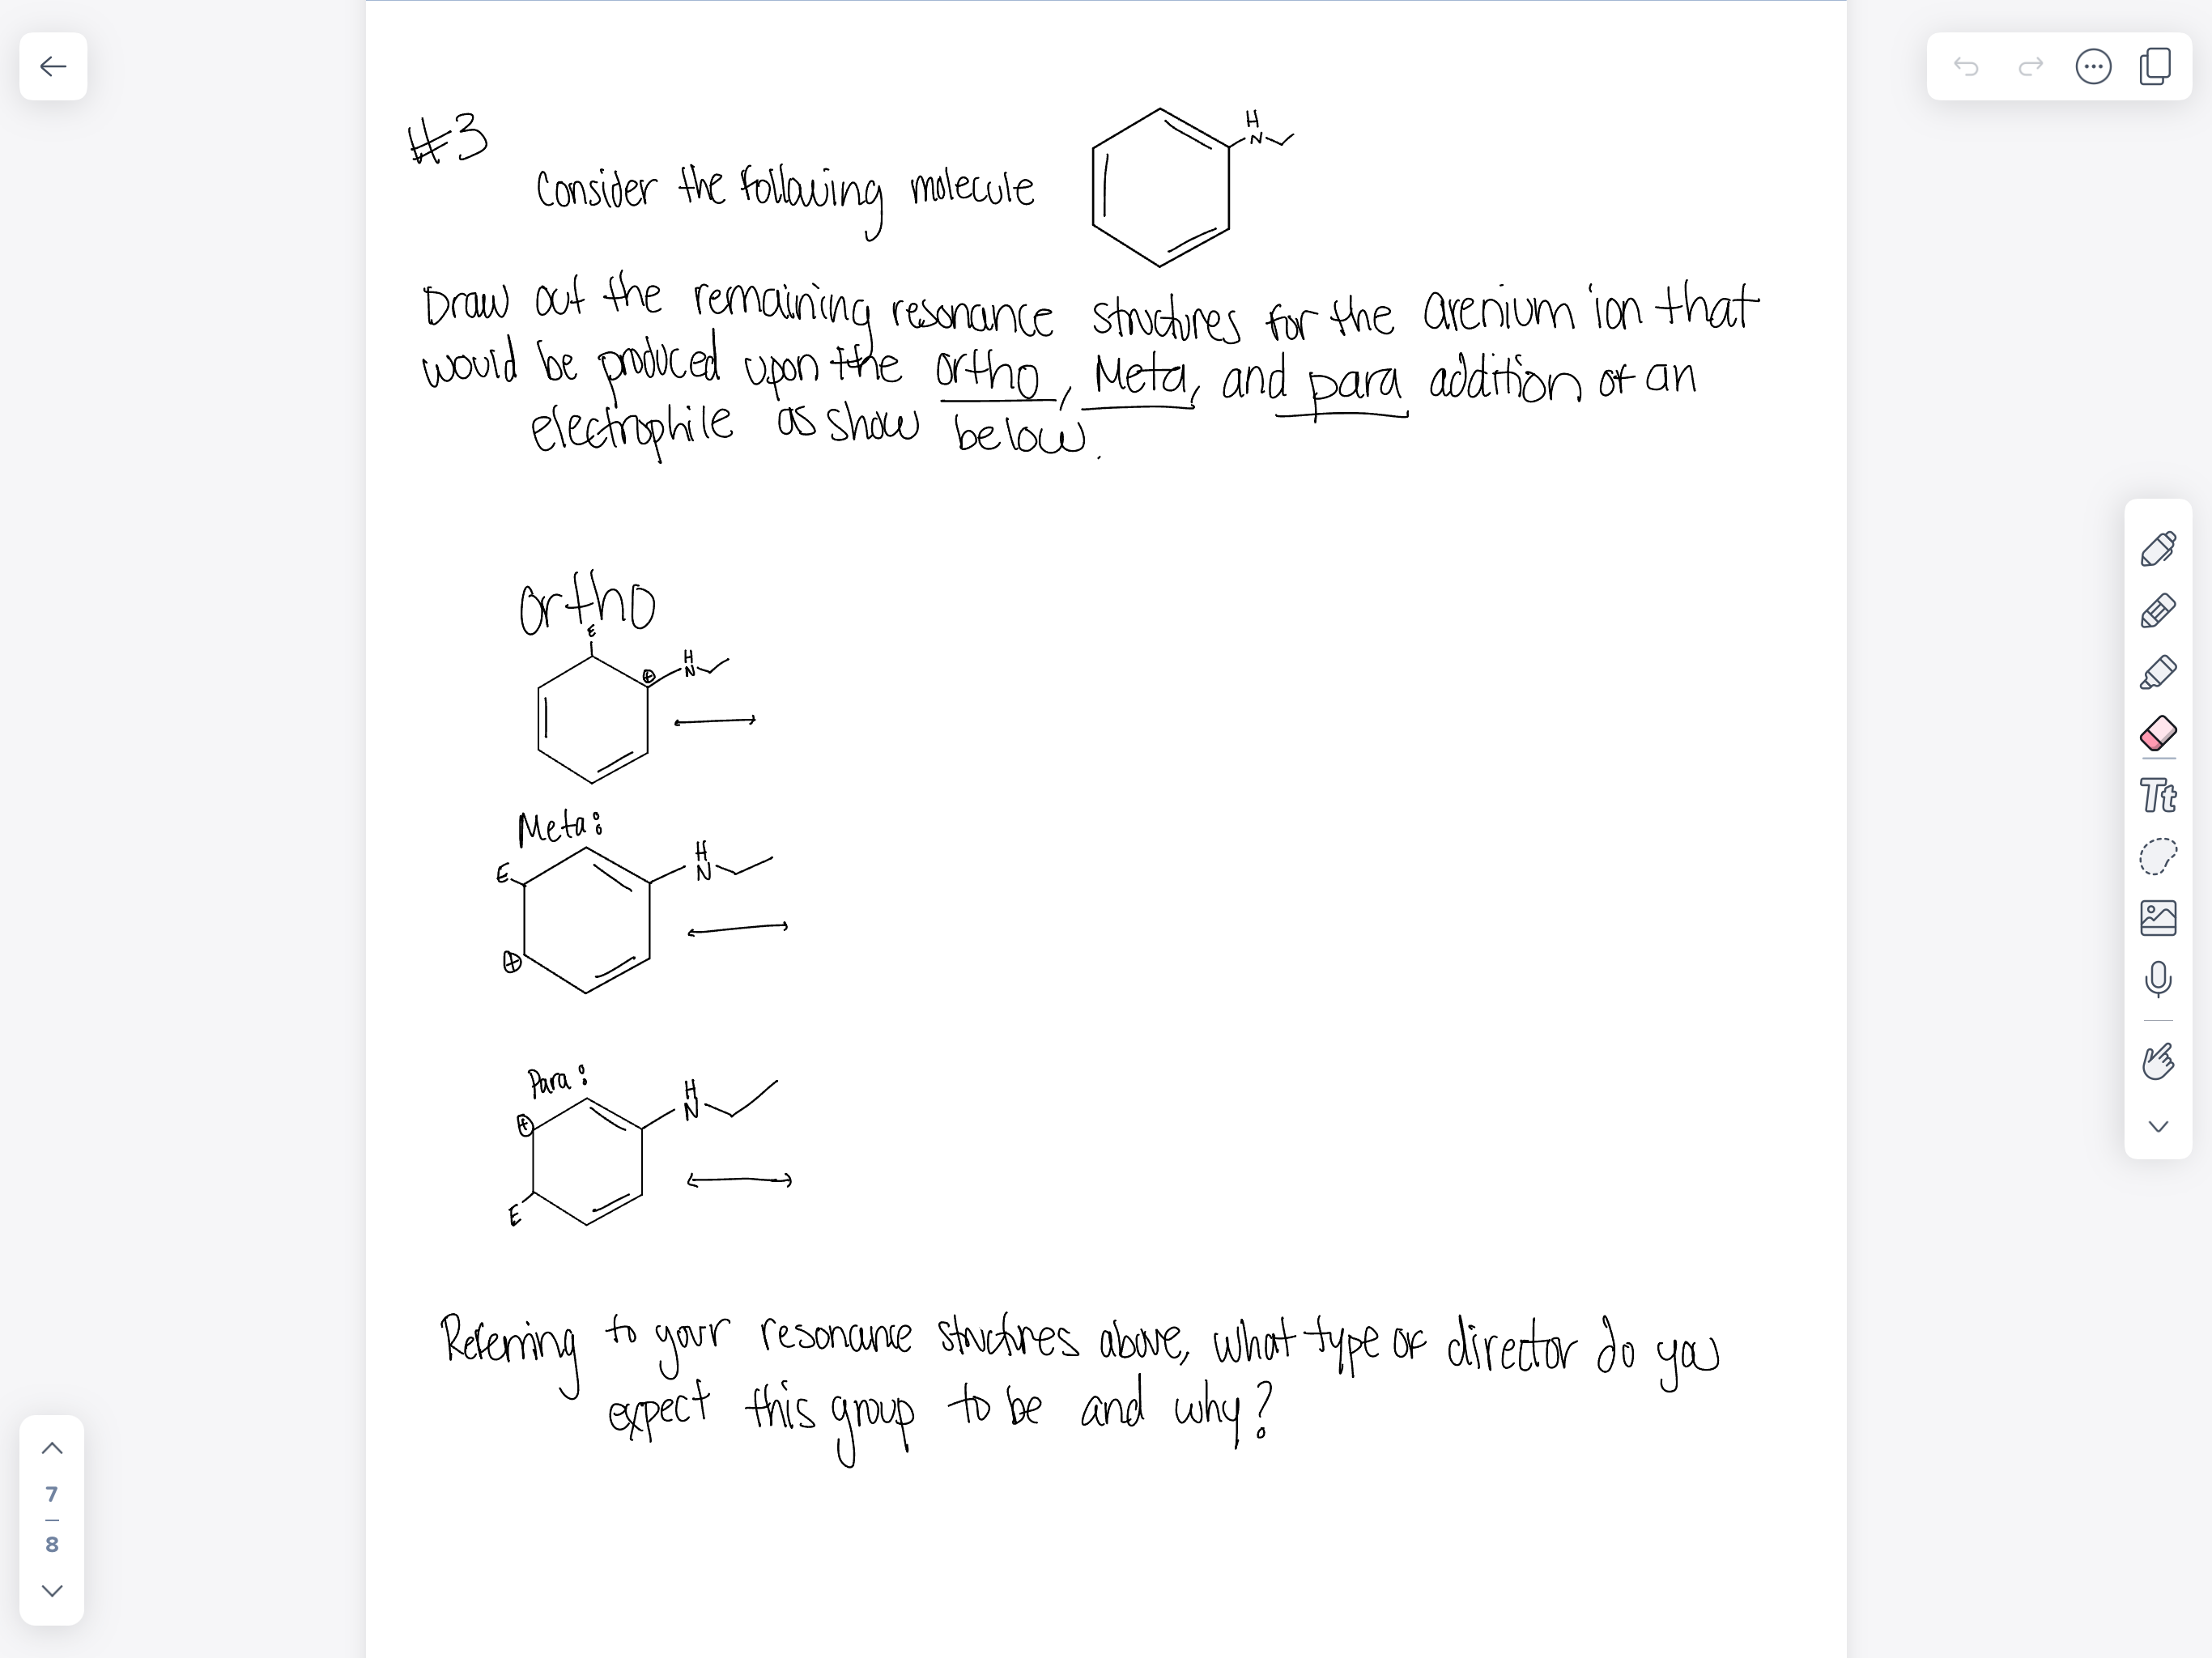 #3
Consider the following molecule
H
N
Draw out the remaining resonance structures for the arenium ion that
would be produced upon the ortho, Meta, and para addition of an
electrophile as show below.
Ortho
E
H
N
⊕
Meta:
E
H
N
⊕
Para:
⊕
H
N
E
Referring to your resonance structures above, what type of director do you
expect this group to be and why?
Tt
7
8